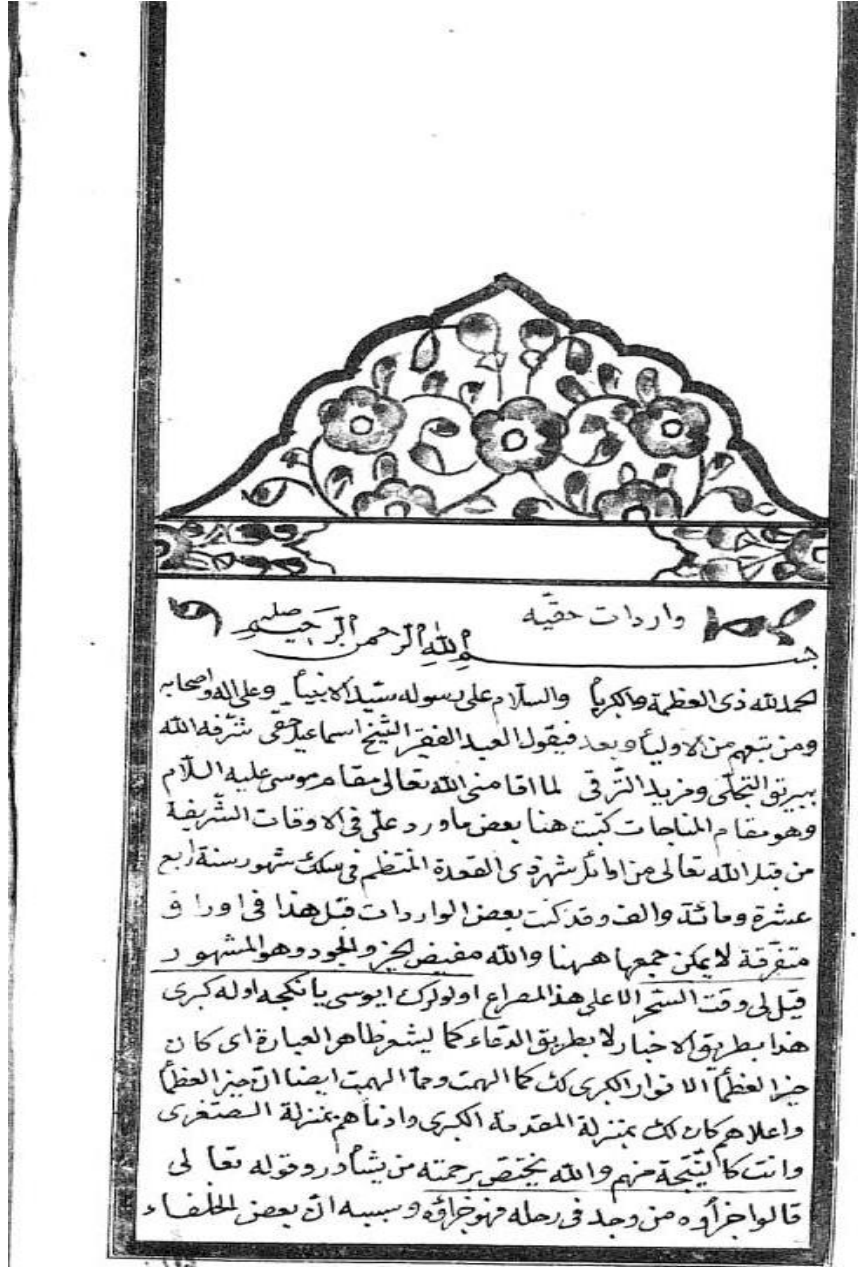 واردات حقيّه
بسم الله الرحمن الرحيم
الحمد لله ذى العظمة والكبرياء والسلام على رسوله سيّد الانبياء وعلى اله واصحابه
ومن تبعهم من الاولياء وبعد فيقول العبد الفقير الشيخ اسماعيل حقّى شرّفه الله
التجلّى ومزيد الترقى لما اقامنى الله تعالى مقام موسى عليه السلام
وهو مقام المناجات كتبت هنا بعض ما ورد علىّ فى الاوقات الشريفة
من قبل الله تعالى من اوائل شهر ذى القعدة المنتظم فى سلك شهور سنة اربع
عشرة ومائة والف وقد كتبت بعض الواردات قبل هذا فى اوراق
متفرّقة لا يمكن جمعها ههنا والله مفيض الخير والجود وهو المشهور
قيل لى وقت السحر الاعلى هذا المصراع اولولرك ايوسى يا نكجه اوله كبرى
هذا بطريق الاخبار لا بطريق الدعاء كما ليشعر ظاهر العبارة اى كان
خير العظماء الانوار الكبرى لك كما الهمت ومما الهمت ايضا انّ خير العظماء
واعلاهم كان لك بمنزلة المقدمة الكبرى وادناهم بمنزلة الصغرى
وانت كالنتيجة منهم والله يختصّ برحمته من يشاء در وقوله تعالى
قالوا جزاؤه من وجد فى رحله فهو جزاؤه وسببه انّ بعض الخلفاء